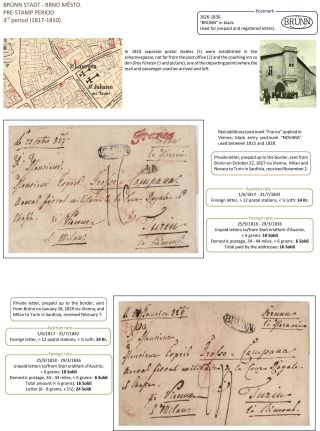 BRÜNN STADT - BRNO MĚSTO.
PRE-STAMP PERIOD
3rd period (1817-1850).
Postmark
1826-1830.
"BRÜNN" in black.
Used for prepaid and registered letters.
BRÜNN
In 1810 separate postal stables (1) were established in the
Johannesgasse, not far from the post office (2) and the coaching inn zu
den Drey Fürsten (3 and picture), one of the departing points where the
mail and passenger coaches arrived and left.
S. Johann
Franco
Monsieur
Monsieur Esprit Frosso Campana
Avocat fiscal militaire
par Vienne
et Milan
Turin
en Piémont
Red additional postmark "Franco" applied in
Vienna; black entry postmark "NOVARA"
used between 1815 and 1828.
Private letter, prepaid up to the border, sent
from Brünn on October 22, 1827 via Vienna, Milan and
Novara to Turin in Sardinia, received November 2.
Austrian rate
1/6/1817 - 31/7/1842
Foreign letter, > 12 postal stations, < ½ Loth: 14 Kr.
Foreign rate:
25/9/1818 - 29/3/1836
Unpaid letters to/from Stati ereditarii d'Austria,
< 6 grams: 10 Soldi
Domestic postage, 34 - 44 miles, < 6 grams: 6 Soldi
Total paid by the addressee: 16 Soldi
Private letter, prepaid up to the border, sent
from Brünn on January 28, 1829 via Vienna, and
Milan to Turin in Sardinia, received February 7.
Austrian rate:
1/6/1817 - 31/7/1842
Foreign letter, > 12 postal stations, < ½ Loth: 14 Kr.
Foreign rate:
25/9/1818 - 29/3/1836
Unpaid letters to/from Stati ereditarii d'Austria,
< 6 grams: 10 Soldi
Domestic postage, 34 - 44 miles, < 6 grams: 6 Soldi
Total amount (< 6 grams): 16 Soldi
Letter (6 - 8 grams, x 1½): 24 Soldi
BRÜNN
Monsieur
Monsieur Esprit Frosso Campana
Avocat fiscal militaire
par Vienne
et Milan
Turin
en Piémont